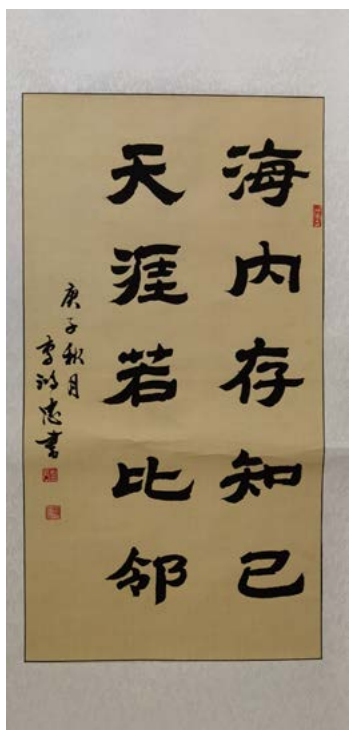 海内存知己
天涯若比邻
庚子秋月
李鸿忠书